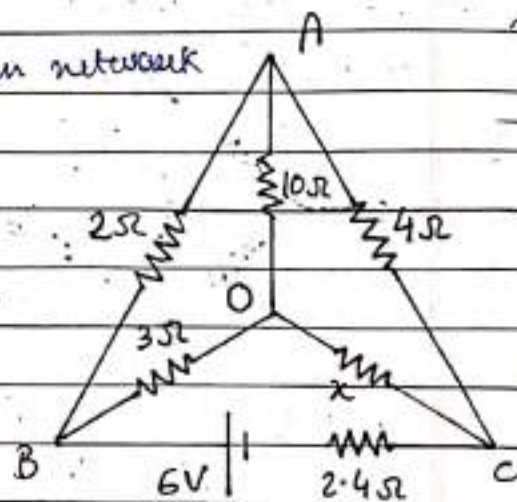 A
network
10Ω
2Ω
4Ω
O
3Ω
x
B
6V
2.4Ω
C